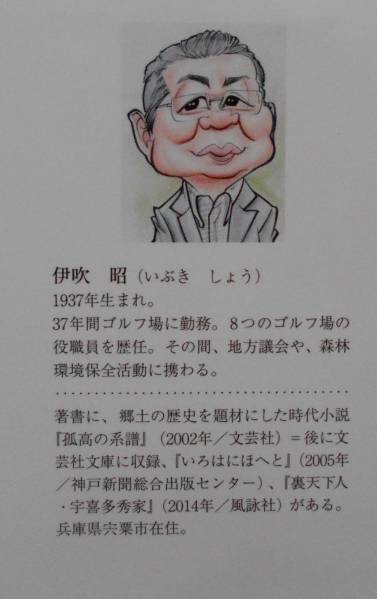 伊吹　昭（いぶき　しょう）
1937年生まれ。
37年間ゴルフ場に勤務。8つのゴルフ場の
役職員を歴任。その間、地方議会や、森林
環境保全活動に携わる。
著書に、郷土の歴史を題材にした時代小説
『孤高の系譜』（2002年／文芸社）＝後に文
芸社文庫に収録、『いろはにほへと』（2005年
／神戸新聞総合出版センター）、『裏天下人
・宇喜多秀家』（2014年／風詠社）がある。
兵庫県宍粟市在住。